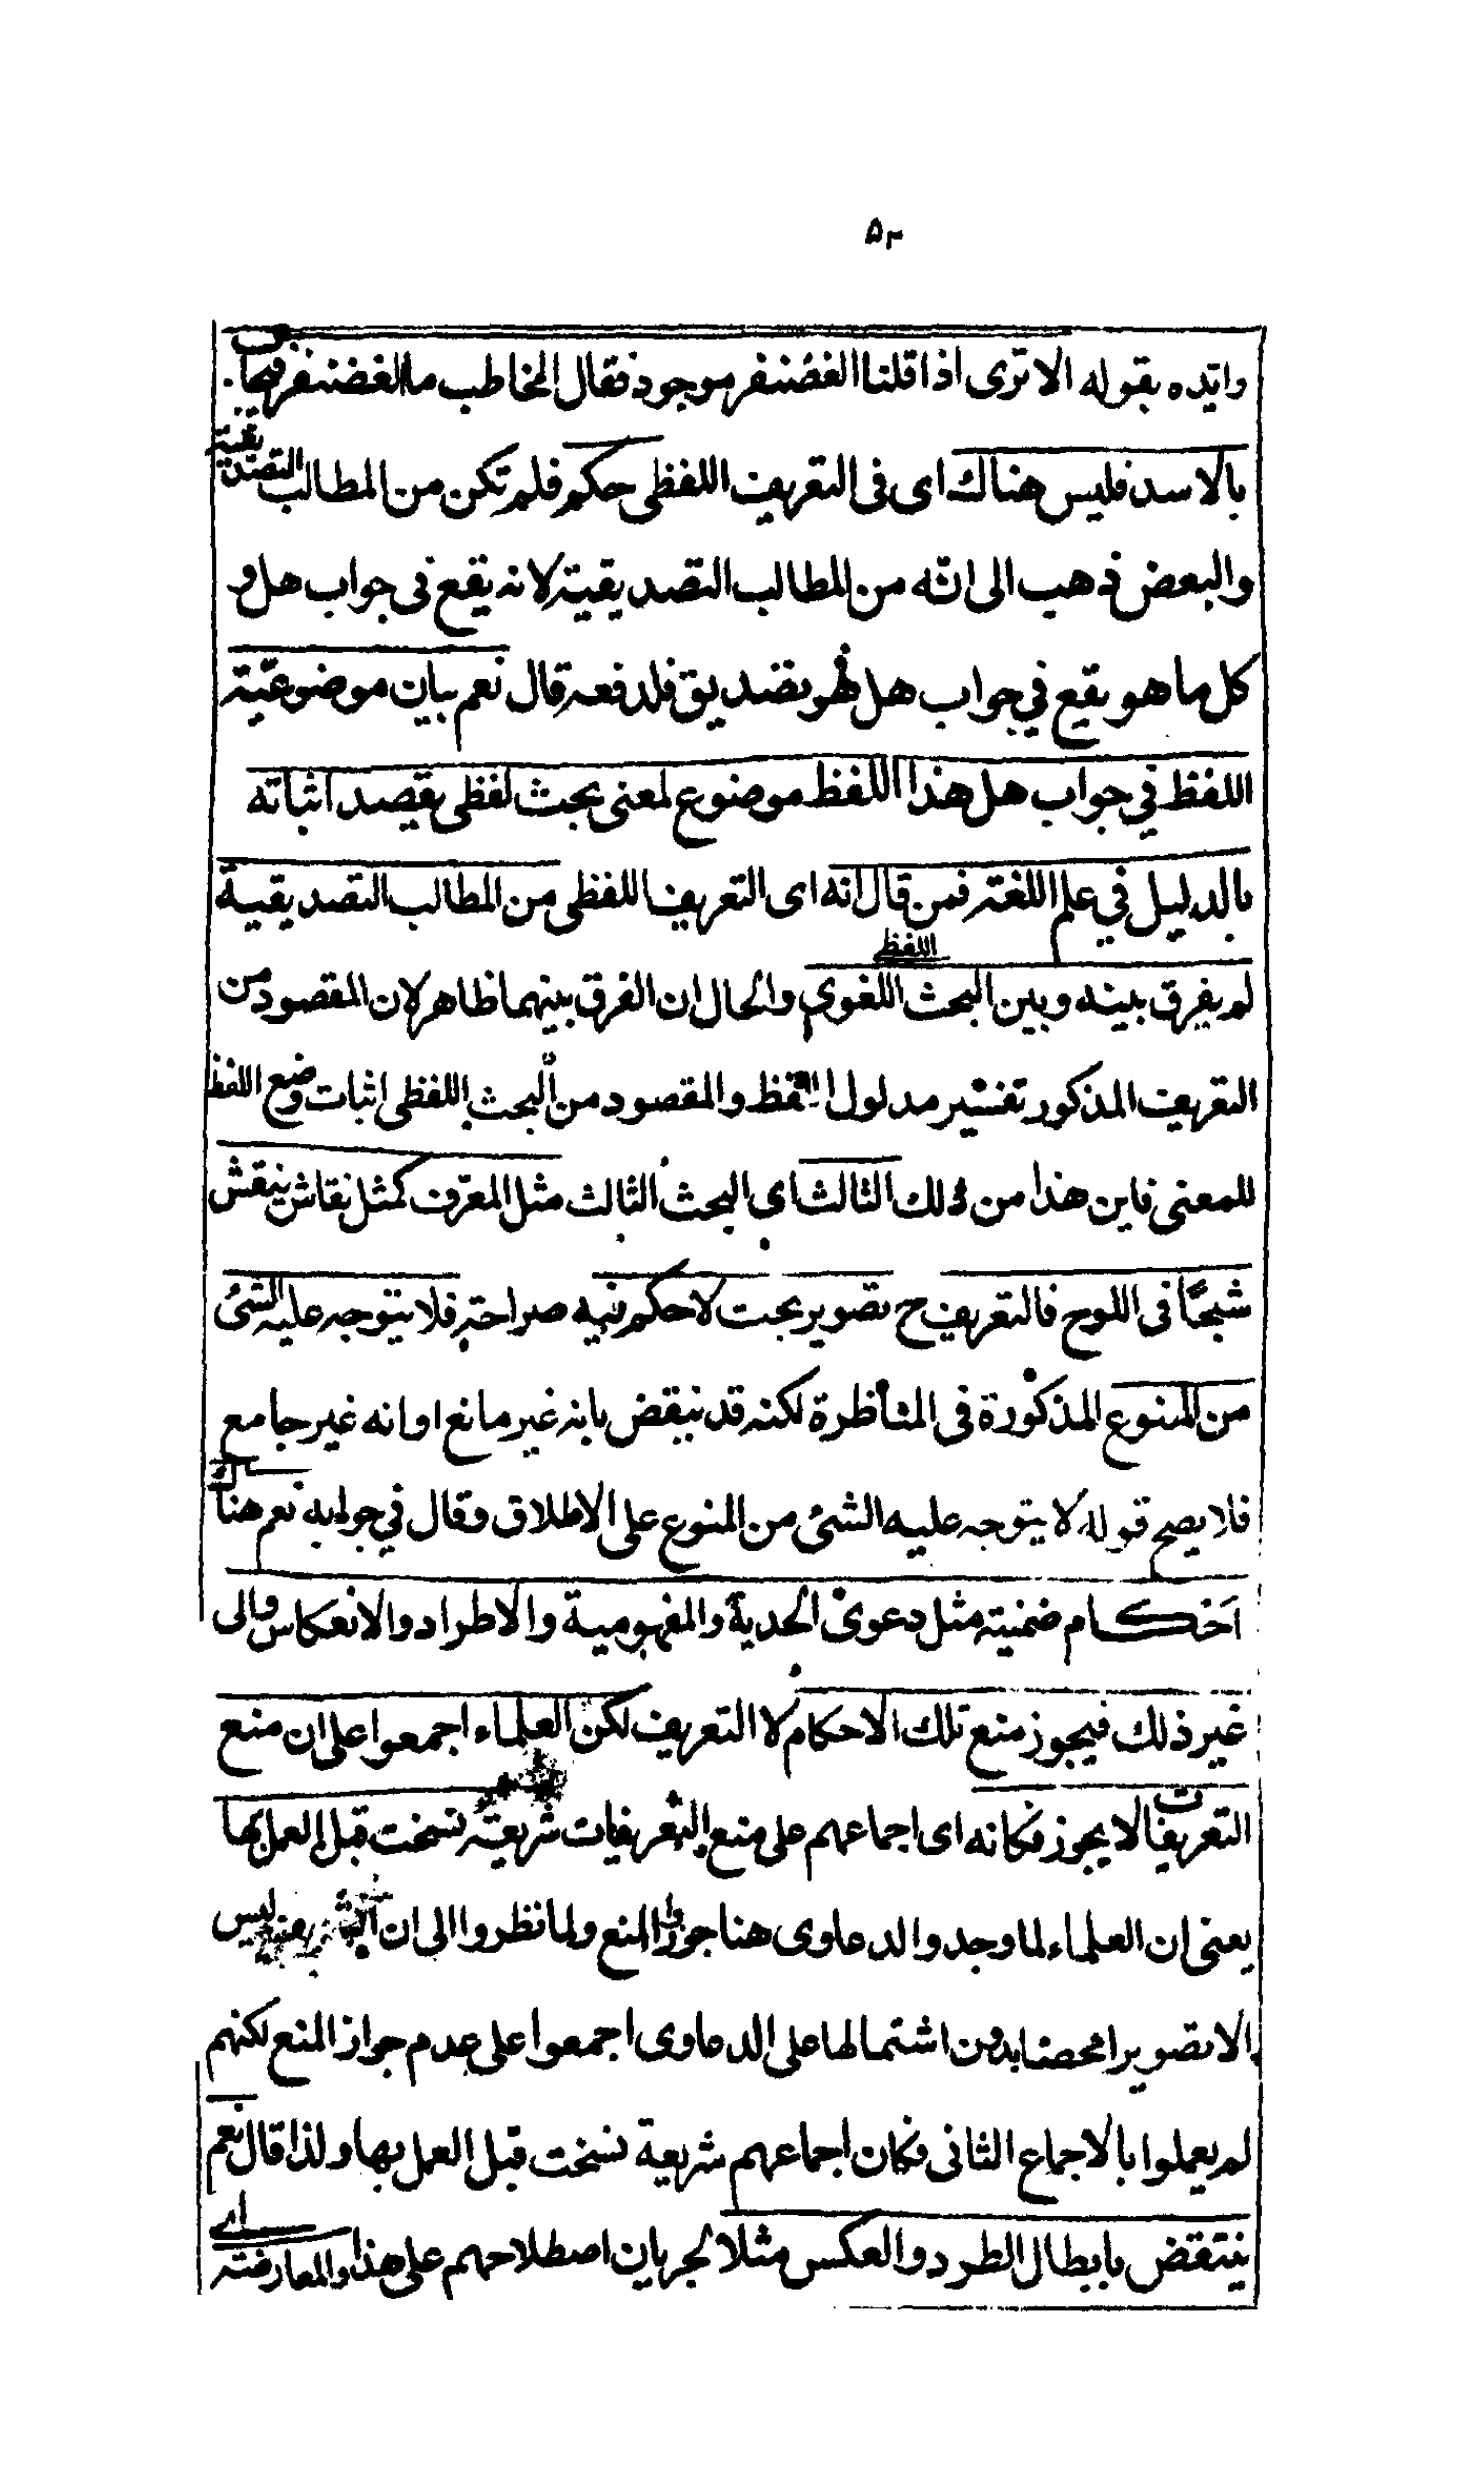 ۵۳
وايّده بقوله الا ترى اذا قلنا الغضنفر موجود فقال المخاطب ما الغضنفر
بالاسد فليس هناك اى فى التعريف اللفظى حكم فلم تكن من المطالب التصديقية
والبعض ذهب الى انّه من المطالب التصديقية لانه يقع فى جواب هل و
كل ما هو يقع في جواب هل فهو تصديق فلدفعه قال نعم بيان موضوعيّة
اللفظ في جواب هل هذا اللفظ موضوع لمعنى بحث لفظى يقصد اثباته
بالدليل في علم اللغة فمن قال انه اى التعريف اللفظى من المطالب التصديقية
لم يفرق بينه وبين البحث اللغوي اللفظى والحال ان الفرق بينهما ظاهر لان المقصود من
التعريف المذكور تفسير مدلول اللفظ والمقصود من البحث اللفظى اثبات وضع اللفظ
للمعنى فاين هذا من ذلك الثالث اي البحث الثالث مثل المعرّف كمثل نقاش ينقش
شبحًا فى اللوح فالتعريف ح تصوير بحت لا حكم فيه صراحة فلا يتوجه عليه الشئ
من المنوع المذكورة فى المناظرة لكنه قد ينقض بانه غير مانع او انه غير جامع
فلا يصح قوله لا يتوجه عليه الشئ من المنوع على الاطلاق وقال في جوابه نعم هناك
احكام ضمنية مثل دعوى الحدية والمفهومية والاطراد والانعكاس والى
غير ذلك فيجوز منع تلك الاحكام لا التعريف لكن العلماء اجمعوا على ان منع
التعريفات لا يجوز فكانه اى اجماعهم على منع التعريفات شريعة نسخت قبل العمل بها
يعنى ان العلماء لما وجدوا الدعاوى هنا جوزوا المنع ولما نظروا الى ان التعريف ليس
الا تصويرا محضا بدون اشتمالها على الدعاوى اجمعوا على عدم جواز المنع لكنهم
لم يعملوا بالاجماع الثانى فكان اجماعهم شريعة نسخت قبل العمل بها ولذا قال نعم
ينتقض بابطال الطرد والعكس مثلا لجريان اصطلاحهم على هذا والمعارضة اي